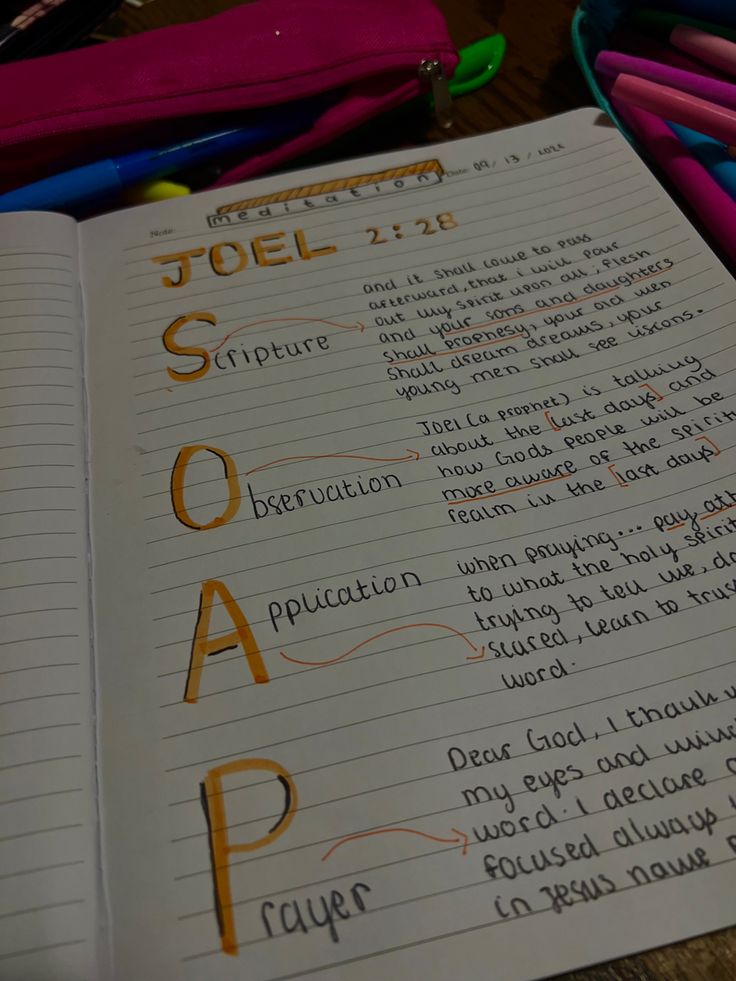 meditation
Note:
Date: 09 / 13 /
JOEL 2:28
Scripture
and it shall come to pass
afterward, that i will pour
out my spirit upon all; flesh
and your sons and daughters
shall prophesy, your old men
shall dream dreams, your
young men shall see visions.
Observation
JOEL (a prophet) is talking
about the [last days] and
how Gods people will be
more aware of the spirit
realm in the [last days]
Application
when praying... pay
to what the holy spirit
trying to tell me,
scared, learn to
word.
Prayer
Dear God, I thank
my eyes and
word. I declare
focused always
in Jesus name